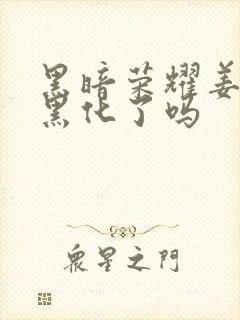 黑暗荣耀姜
黑化了吗
眾星之門